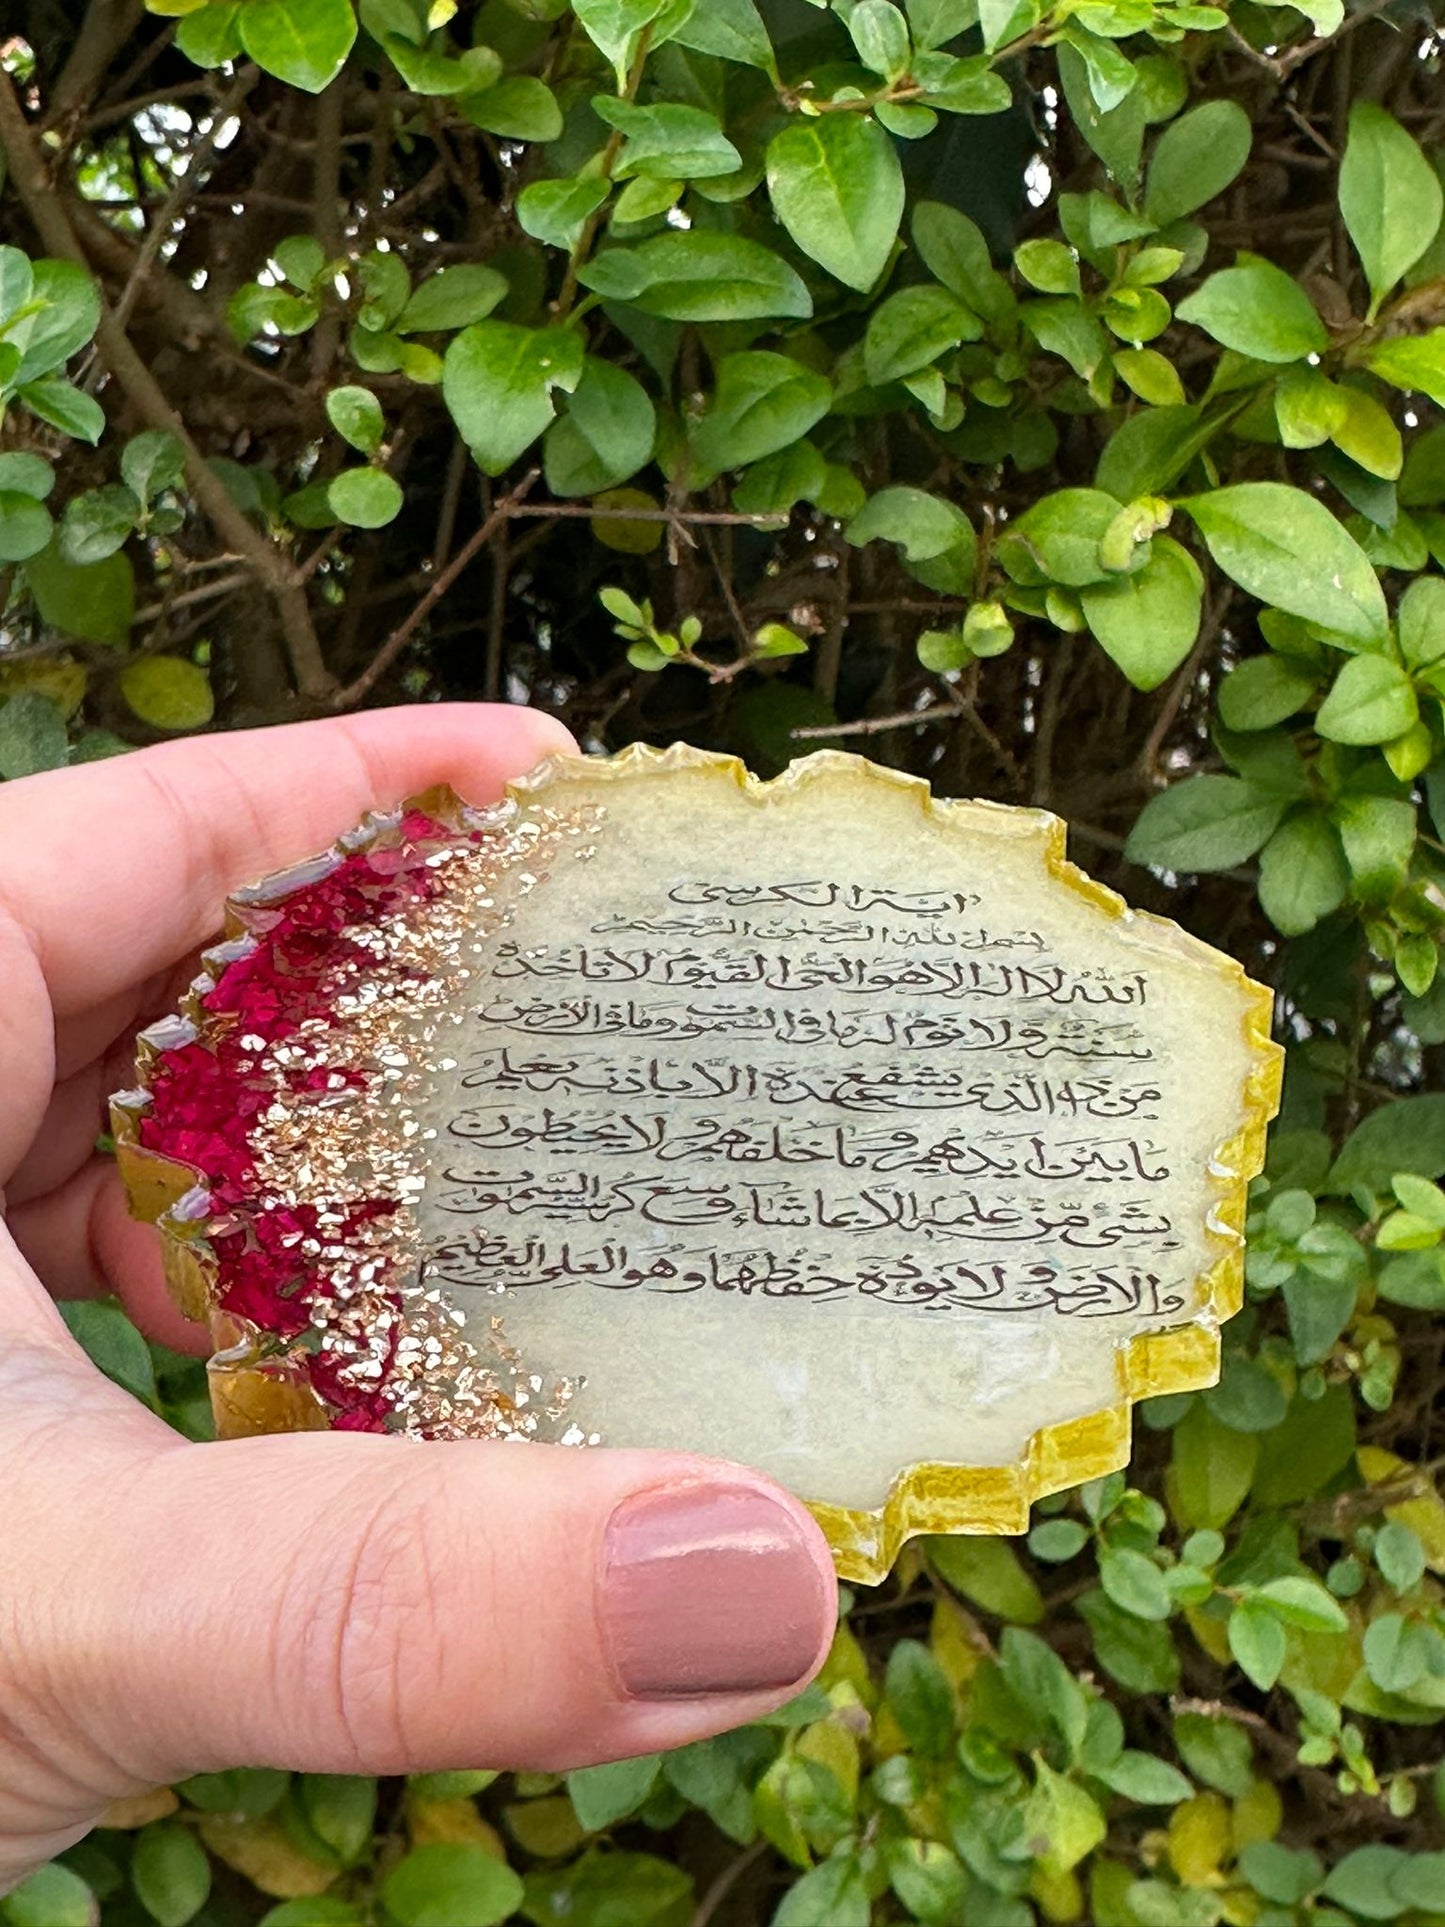 اية الكرسى
بسم الله الرحمن الرحيم
الله لا اله الا هو الحى القيوم لا تأخذه
سنة ولا نوم له ما فى السموت وما فى الارض
من ذا الذى يشفع عنده الا باذنه يعلم
ما بين ايديهم وما خلفهم ولا يحيطون
بشىء من علمه الا بما شاء وسع كرسيه السموات
والارض ولا يؤده حفظهما وهو العلى العظيم